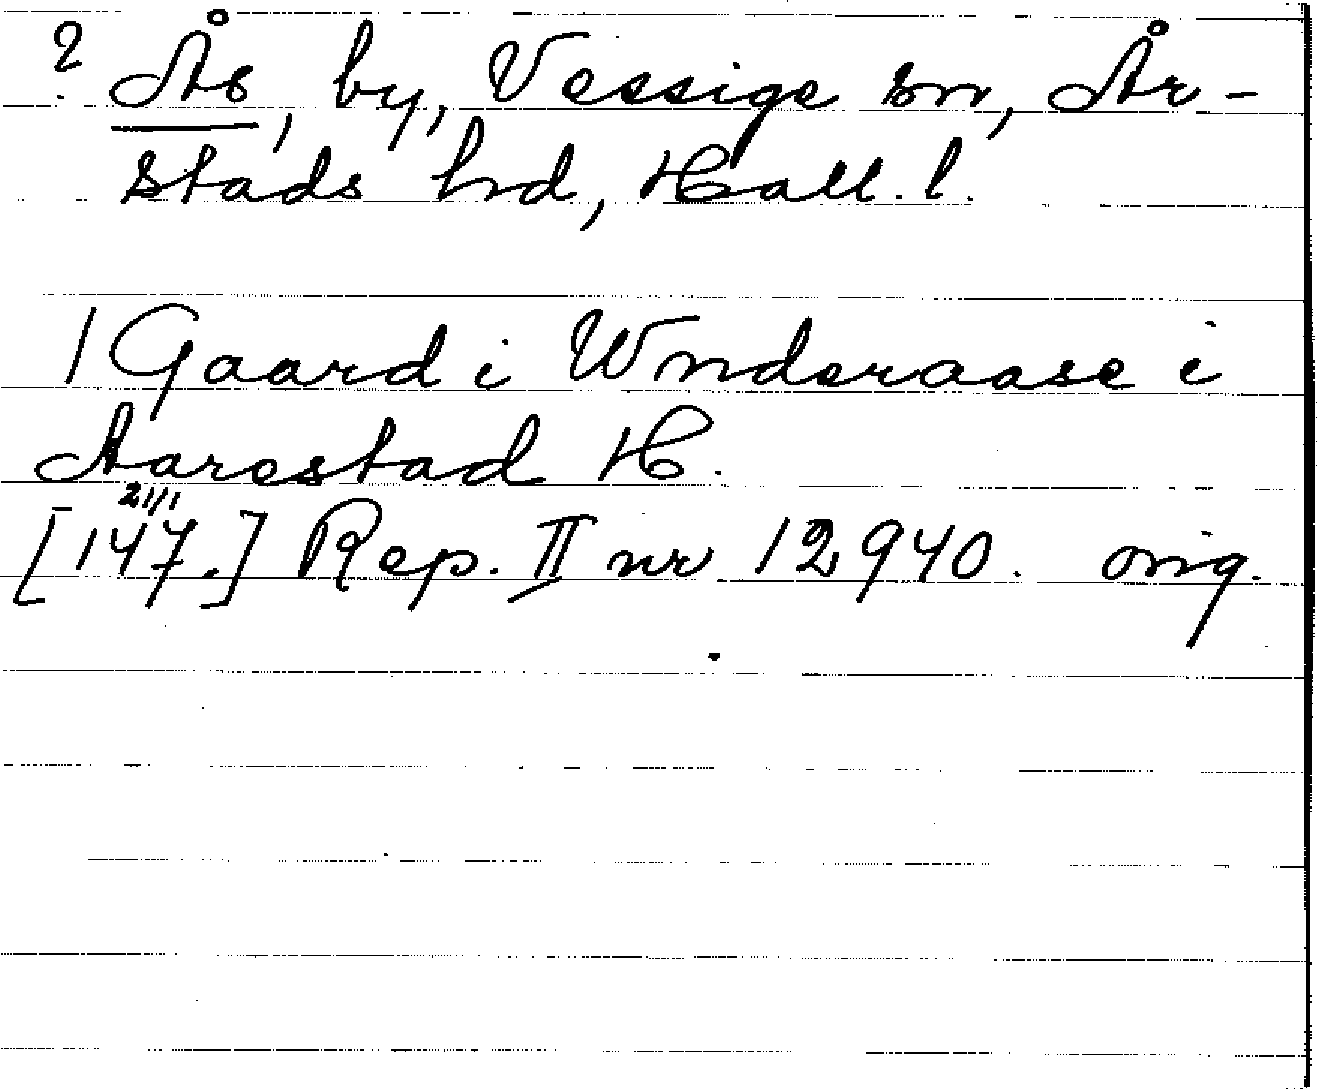 ? Ås, by, Vessige sn, År-
stads hd, Hall. l.
1 Gaard i Wnderaase i
Aarestad H.
21/1
[147.] Rep. II nr 12940. orig.